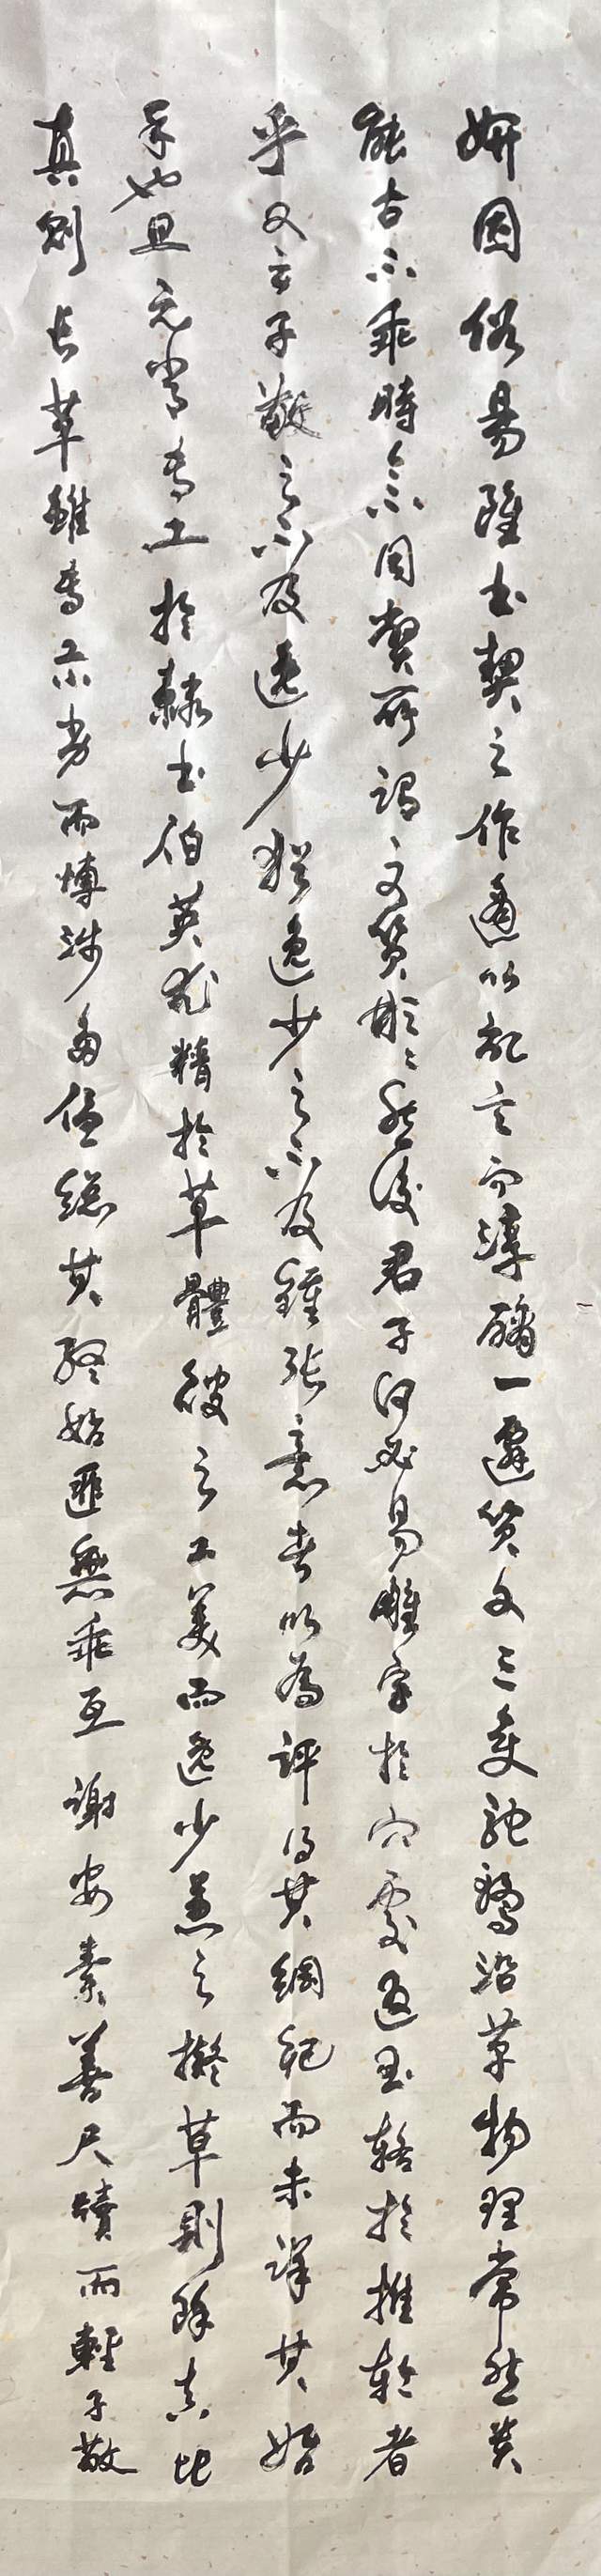 妍因俗易雖書契之作適以記言而淳醨一遷質文三變馳鶩沿革物理常然貴
能古不乖時今不同弊所謂文質彬彬然後君子何必易雕宮於穴處返玉輅於椎輪者
乎又云子敬之不及逸少猶逸少之不及鍾張意者以為評得其綱紀而未詳其始
卒也且元常專工於隸書伯英尤精於草體彼之二美而逸少兼之擬草則餘真比
真則長草雖專工小劣而博涉多優總其終始匪無乖互謝安素善尺牘而輕子敬